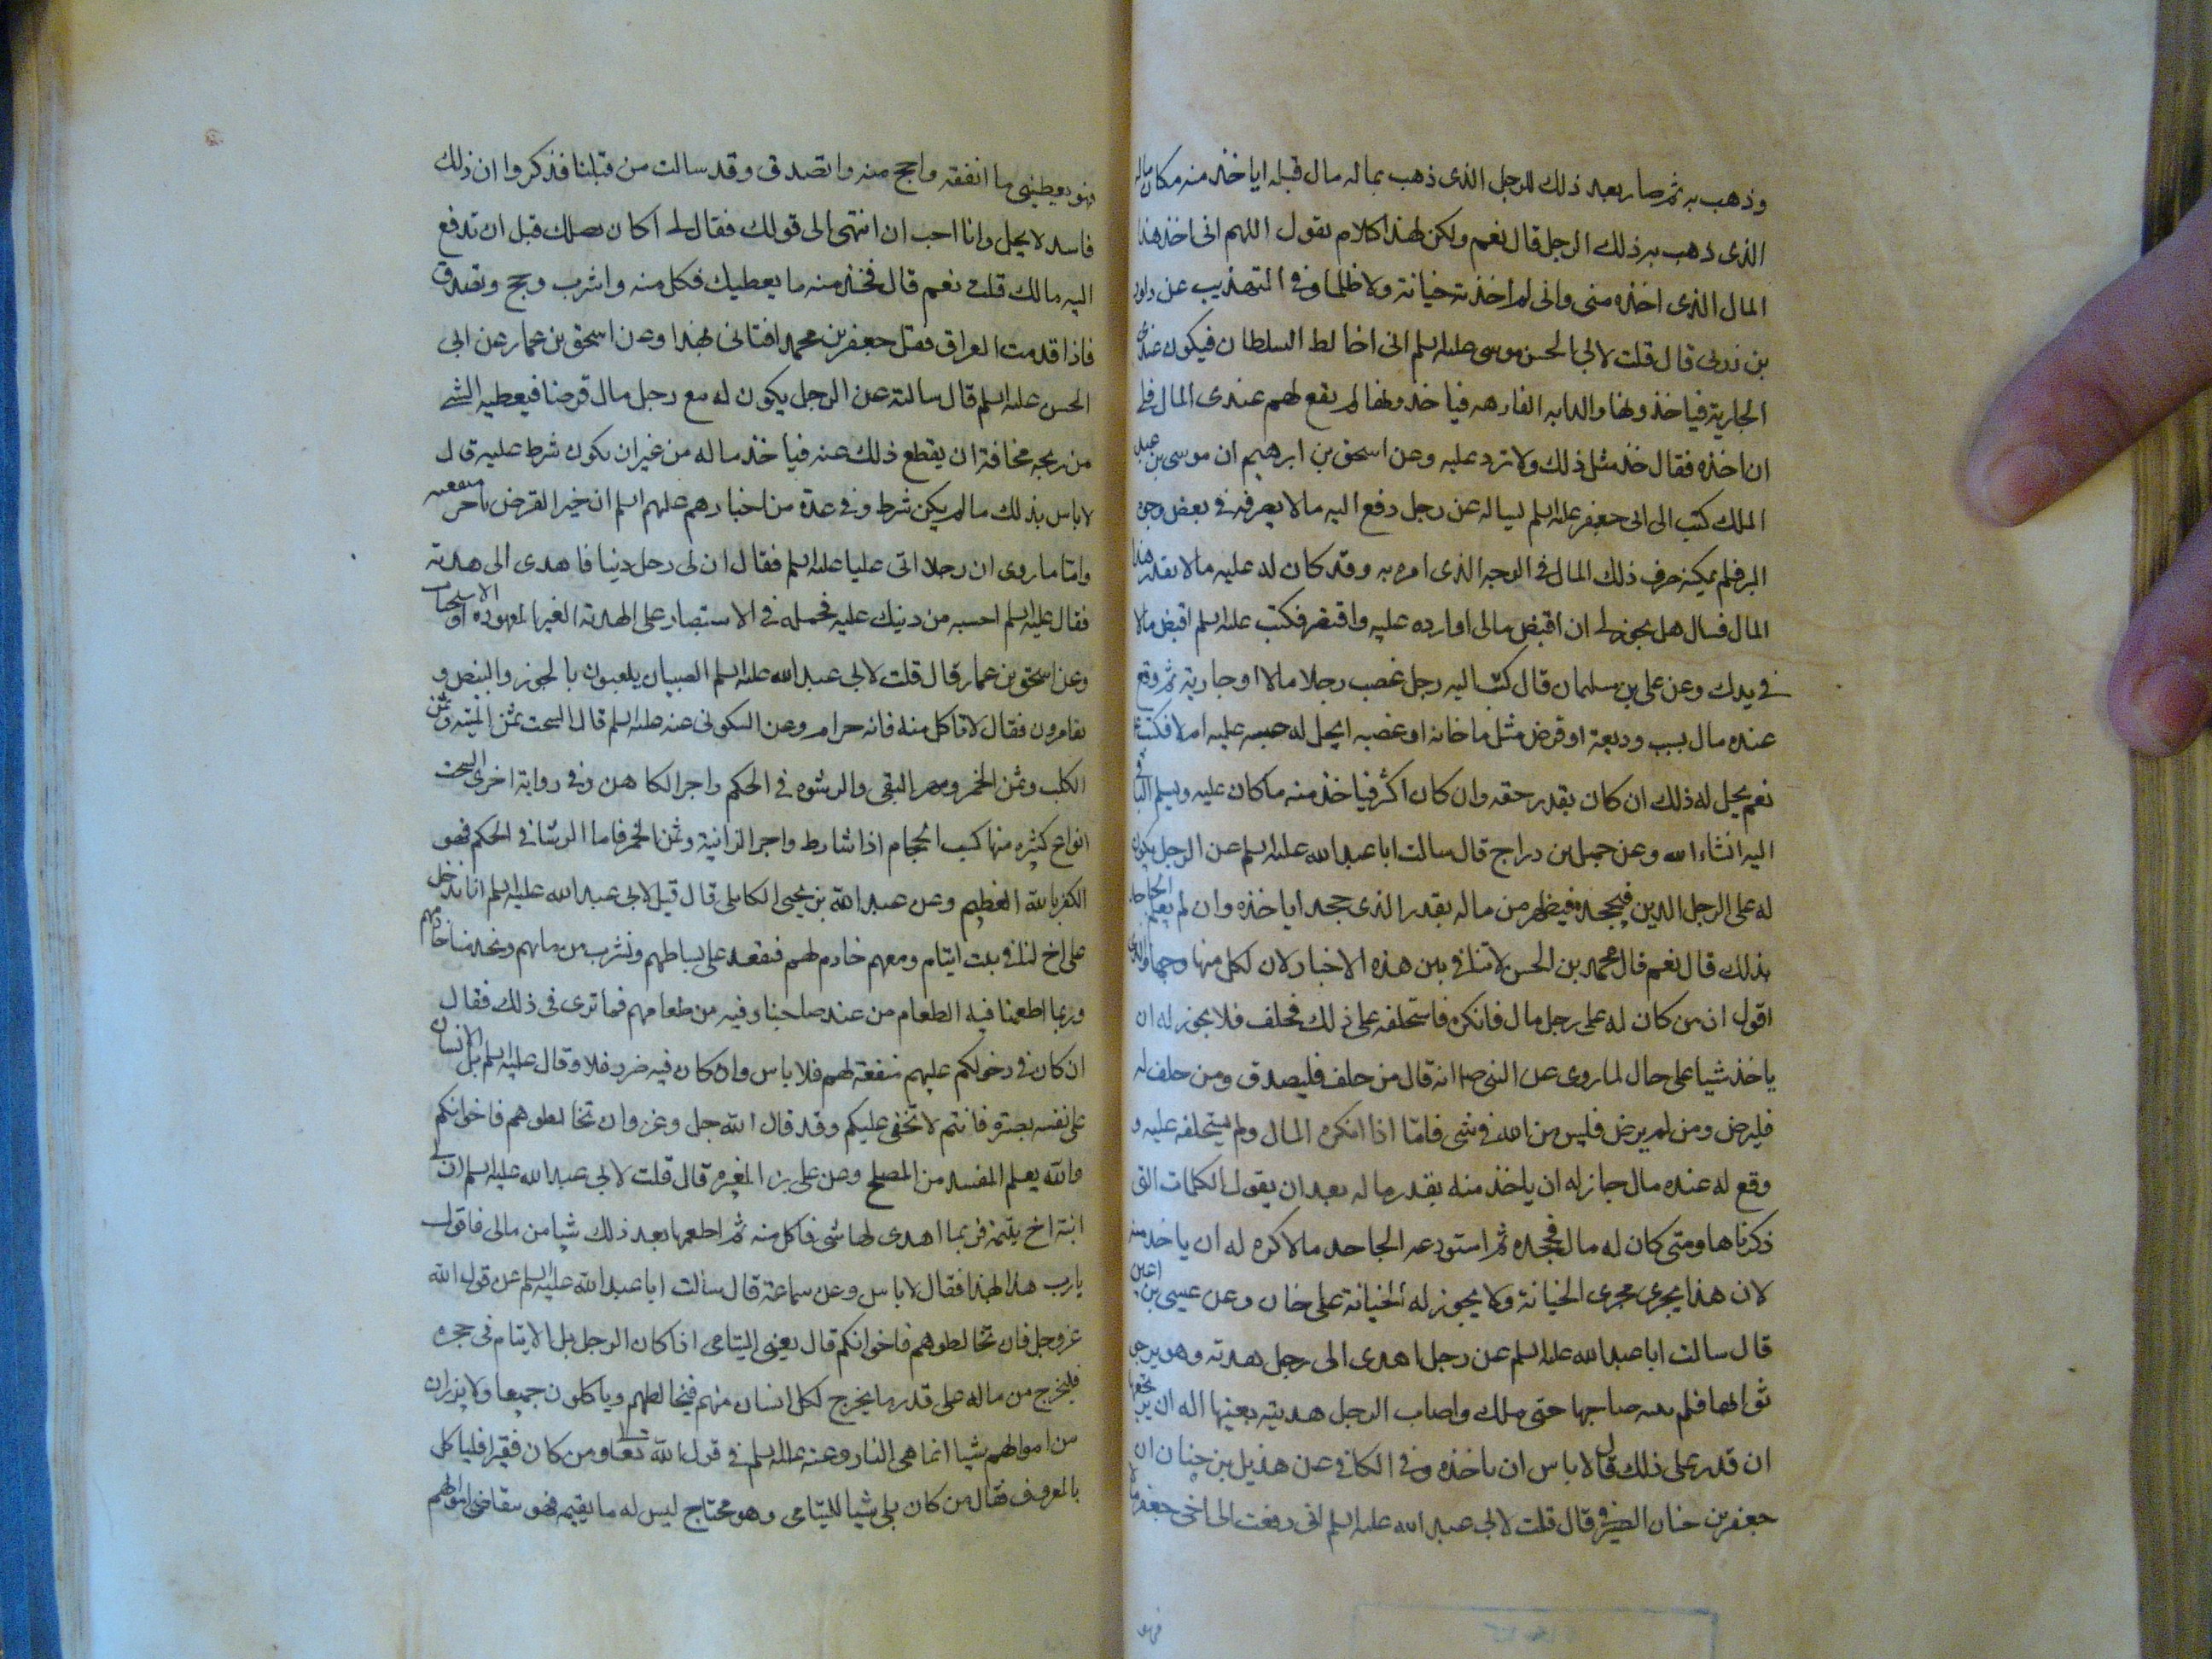 وذهب به ثم صار بعد ذلك للرجل الذى ذهب بماله مال قبله اياخذ منه مكان ماله
الذى ذهب به ذلك الرجل قال نعم ولكن لهذا كلام يقول اللهم انى اخذ هذا
المال الذى اخذه منى وانى لم اخذته خيانة ولا ظلما وفى التهذيب عن داود
بن زربى قال قلت لابى الحسن موسى عليه السلم انى اخالط السلطان فيكون عندى
الجارية فياخذونها والدابه الفارهه فياخذونها ثم يقع لهم عندى المال فلى
ان اخذه فقال خذ مثل ذلك ولا تزد عليه وعن اسحق بن ابرهيم ان موسى بن عبد
الملك كتب الى ابى جعفر عليه السلم يساله عن رجل دفع اليه مالا يصرفه فى بعض وجوه
البر فلم يمكنه صرف ذلك المال فى الوجه الذى امره به وقد كان له عليه مالا بقدر هذا
المال فسال هل يجوز لى ان اقبض مالى او ارده عليه واقتضه فكتب عليه السلم اقبض مالا
فى يدك وعن على بن سليمان قال كتب اليه رجل غصب رجلا مالا او جارية ثم وقع
عنده مال بسبب وديعة او قرض مثل ما خانه او غصبه ايحل له حبسه عليه ام لا فكتب ع
نعم يحل له ذلك ان كان بقدر حقه وان كان اكثر فياخذ منه ما كان عليه ويسلم الباقى
اليه انشاء الله وعن جميل بن دراج قال سالت ابا عبد الله عليه السلم عن الرجل يكون
له على الرجل الدين فيجحده فيظفر من ماله بقدر الذى جحد اياخذه وان لم يعلم الجاحد
بذلك قال نعم قال محمد بن الحسن لا تنافى بين هذه الاخبار لان لكل منها وجها والذى
اقول ان من كان له على رجل مال فانكره فاستحلفه على ذلك فحلف فلا يجوز له ان
ياخذ شيا على حال لما روى عن النبى ص انه قال من حلف فليصدق ومن حلف له
فليرض ومن لم يرض فليس من الله فى شى فاما اذا انكره المال ولم يستحلفه عليه و
وقع له عنده مال جاز له ان ياخذ منه بقدر ماله بعد ان يقول الكلمات التى
ذكرناها ومتى كان له مال فجحده ثم استودعه الجاحد مالا كره له ان ياخذ منه
لان هذا يجرى مجرى الخيانة ولا يجوز له الخيانة على خان وعن عيسى بن اعين
قال سالت ابا عبد الله عليه السلم عن رجل اهدى الى رجل هدية وهو يرجو
ثوابها فلم يثبه صاحبها حتى هلك واصاب الرجل هديته بعينها اله ان يرتجعها
ان قدر على ذلك قال لا باس ان ياخذه وفى الكافى عن هذيل بن حنان ان
جعفر بن حنان الصيرفى قال قلت لابى عبد الله عليه السلم انى دفعت الى اخى جعفر مالا
فهو
فهو يعطينى ما انفقه واحج منه واتصدق وقد سالت من قبلنا فذكروا ان ذلك
فاسد لا يحل وانا احب ان انتهى الى قولك فقال لى اكان يصلك قبل ان تدفع
اليه مالك قلت نعم قال فخذ منه ما يعطيك فكل منه واشرب وحج وتصدق
فاذا قدمت العراق فقل جعفر بن محمد افتانى بهذا وعن اسحق بن عمار عن ابى
الحسن عليه السلم قال سالته عن الرجل يكون له مع رجل مال قرضا فيعطيه الشى
من ربحه مخافة ان يقطع ذلك عنه فياخذ ماله من غير ان يكون شرط عليه قال
لا باس بذلك ما لم يكن شرط وفى عدة من اخبارهم عليهم السلم ان خير القرض ما جر منفعه
واما ما روى ان رجلا اتى عليا عليه السلم فقال ان لى رجل دينا فاهدى الى هدية
فقال عليه السلم احسبه من دينك عليه فحمله فى الاستبصار على الهدية الغير المعهوده او الاستحباب
وعن اسحق بن عمار قال قلت لابى عبد الله عليه السلم الصبيان يلعبون بالجوز والبيض و
يقامرون فقال لا تاكل منه فانه حرام وعن السكونى عنه عليه السلم قال السحت ثمن الميته وثمن
الكلب وثمن الخمر ومهر البغى والرشوه فى الحكم واجر الكاهن وفى رواية اخرى السحت
انواع كثيره منها كسب الحجام اذا شارط واجر الزانية وثمن الخمر فاما الرشا فى الحكم فهو
الكفر بالله العظيم وعن عبد الله بن يحيى الكاهلى قال قيل لابى عبد الله عليه السلم انا ندخل
على اخ لنا فى بيت ايتام ومعهم خادم لهم فنقعد على بساطهم ونشرب من مائهم ويخدمنا خادمهم
وربما اطعمنا فيه الطعام من عند صاحبنا وفيه من طعامهم فما ترى فى ذلك فقال
ان كان فى دخولكم عليهم منفعة لهم فلا باس وان كان فيه ضرر فلا وقال عليه السلم بل الانسان
على نفسه بصيرة فانتم لا تخفى عليكم وقد قال الله جل وعز وان تخالطوهم فاخوانكم
والله يعلم المفسد من المصلح وعن على بن المغيره قال قلت لابى عبد الله عليه السلم ان لى
ابنة اخ يتيمة فربما اهدى لها شى فاكل منه ثم اطعمها بعد ذلك شيا من مالى فاقول
يا رب هذا بهذا فقال لا باس وعن سماعة قال سالت ابا عبد الله عليه السلم عن قول الله
عز وجل فان تخالطوهم فاخوانكم قال يعنى اليتامى اذا كان الرجل يلى الايتام فى حجره
فليخرج من ماله على قدر ما يخرج لكل انسان منهم فيخالطهم وياكلون جميعا ولا يرزان
من اموالهم شيا انما هى النار وعنه عليه السلم فى قول الله تعالى ومن كان فقيرا فلياكل
بالمعروف فقال من كان يلى شيا لليتامى وهو محتاج ليس له ما يقيمه فهو يتقاضى اموالهم